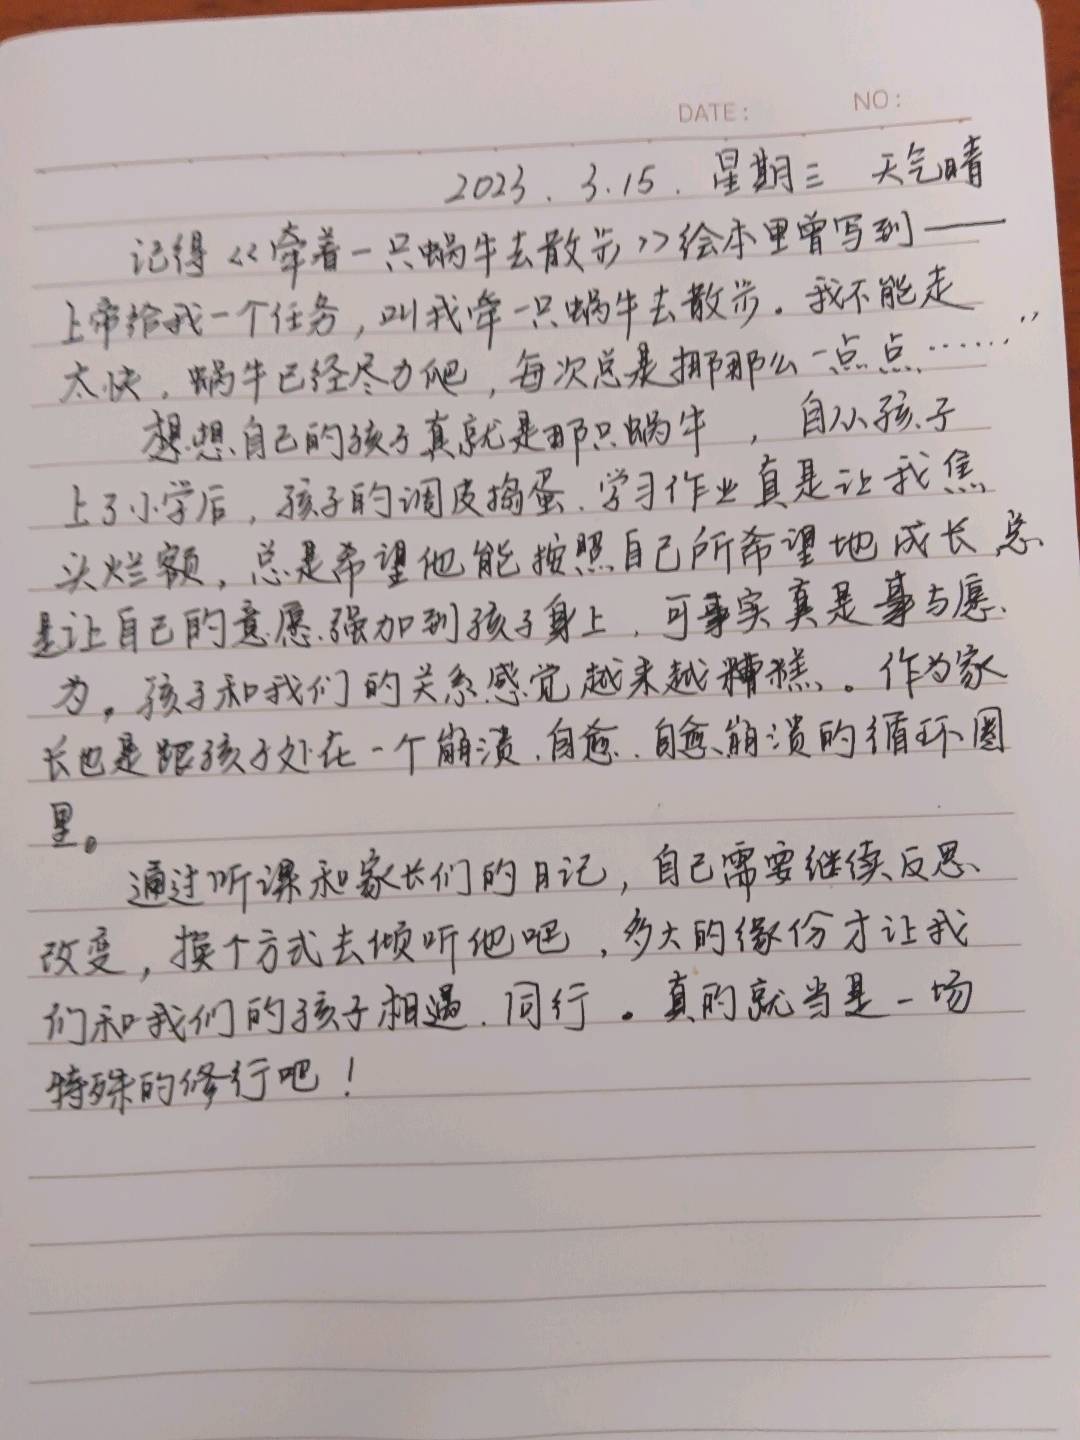 DATE: NO:
2023.3.15. 星期三 天气晴
记得《牵着一只蜗牛去散步》绘本里曾写到——
上帝给我一个任务，叫我牵一只蜗牛去散步。我不能走
太快，蜗牛已经尽力爬，每次总是挪那么一点点……”
想想自己的孩子真就是那只蜗牛，自从孩子
上了小学后，孩子的调皮捣蛋、学习作业真是让我焦
头烂额，总是希望他能按照自己所希望地成长，总
是让自己的意愿强加到孩子身上，可事实真是事与愿
为。孩子和我们的关系感觉越来越糟糕。作为家
长也是跟孩子处在一个崩溃、自愈、自愈、崩溃的循环圈
里。
通过听课和家长们的日记，自己需要继续反思、
改变，换个方式去倾听他吧，多大的缘份才让我
们和我们的孩子相遇、同行。真的就当是一场
特殊的修行吧！